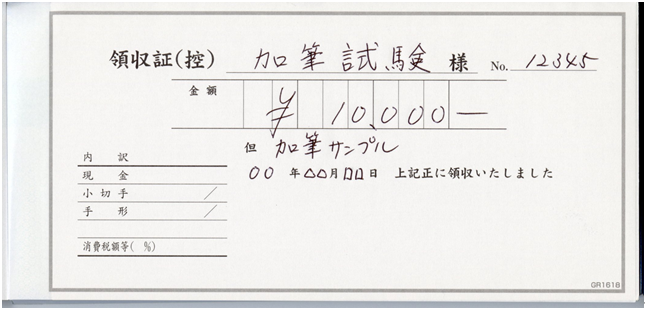 領収証(控) 加筆試験 様 No. 12345
金額 ¥ 10,000―
但 加筆サンプル
○○ 年 △△月 □□日 上記正に領収いたしました
内 訳
現 金
小切手 /
手 形 /
消費税額等( %)
GR1618